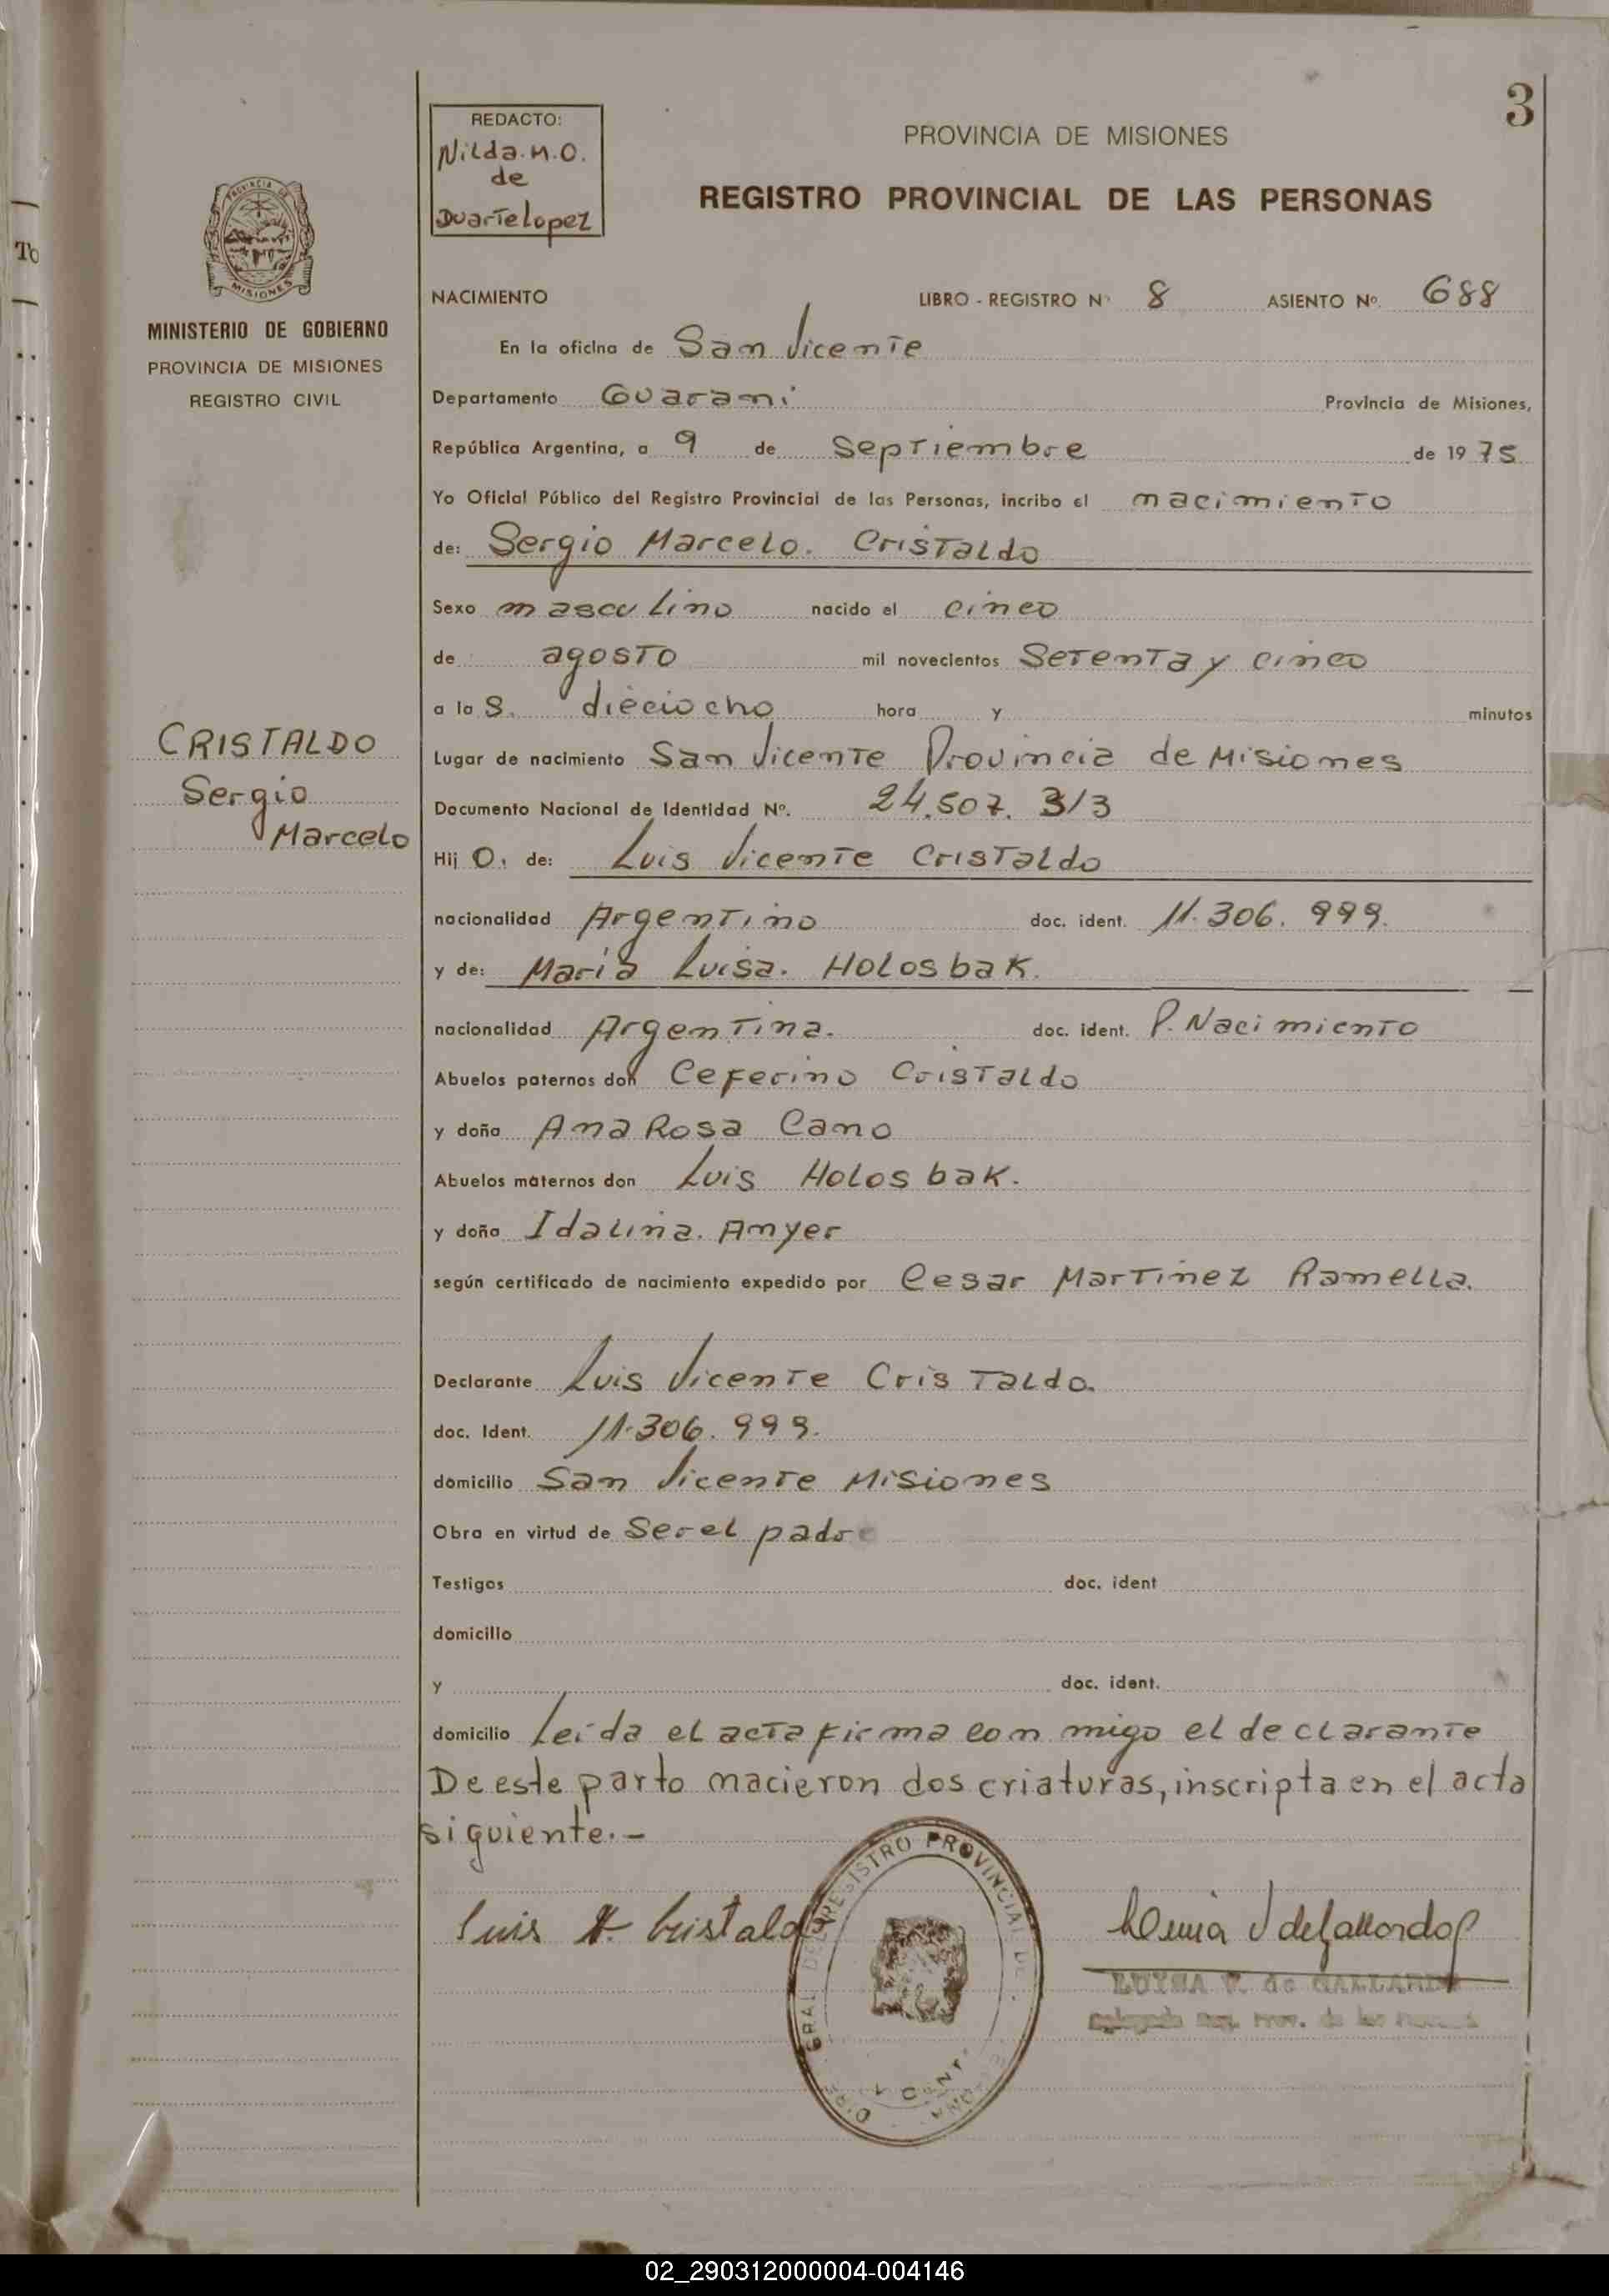 3
REDACTO:
Nilda. M. O.
de
Duarte Lopez
PROVINCIA DE MISIONES
REGISTRO PROVINCIAL DE LAS PERSONAS
PROVINCIA DE
MISIONES
MINISTERIO DE GOBIERNO
PROVINCIA DE MISIONES
REGISTRO CIVIL
To
NACIMIENTO LIBRO - REGISTRO Nº 8 ASIENTO Nº. 688
En la oficina de San Vicente
Departamento Guarani Provincia de Misiones,
República Argentina, a 9 de Septiembre de 1975
Yo Oficial Público del Registro Provincial de las Personas, incribo el nacimiento
de: Sergio Marcelo. Cristaldo
Sexo masculino nacido el cinco
de agosto mil novecientos Setenta y cinco
a la s. dieciocho hora y minutos
CRISTALDO
Sergio
Marcelo
Lugar de nacimiento San Vicente Provincia de Misiones
Documento Nacional de Identidad Nº. 24.507.313
Hij o. de: Luis Vicente Cristaldo
nacionalidad Argentino doc. ident. 11.306.999.
y de: Maria Luisa. Holosbak.
nacionalidad Argentina. doc. ident. P. Nacimiento
Abuelos paternos don Ceferino Cristaldo
y doña Ana Rosa Cano
Abuelos maternos don Luis Holosbak.
y doña Idalina. Amyer
según certificado de nacimiento expedido por Cesar Martinez Ramella.
Declarante Luis Vicente Cristaldo.
doc. Ident. 11.306.999.
domicilio San Vicente Misiones
Obra en virtud de Ser el padre
Testigos doc. ident
domicilio
y doc. ident.
domicilio Leída el acta firma con migo el declarante
De este parto nacieron dos criaturas, inscripta en el acta
siguiente.-
Luis V. Cristaldo
REGISTRO PROVINCIAL DE
LUISA V. de GALLARDO
02_290312000004-004146